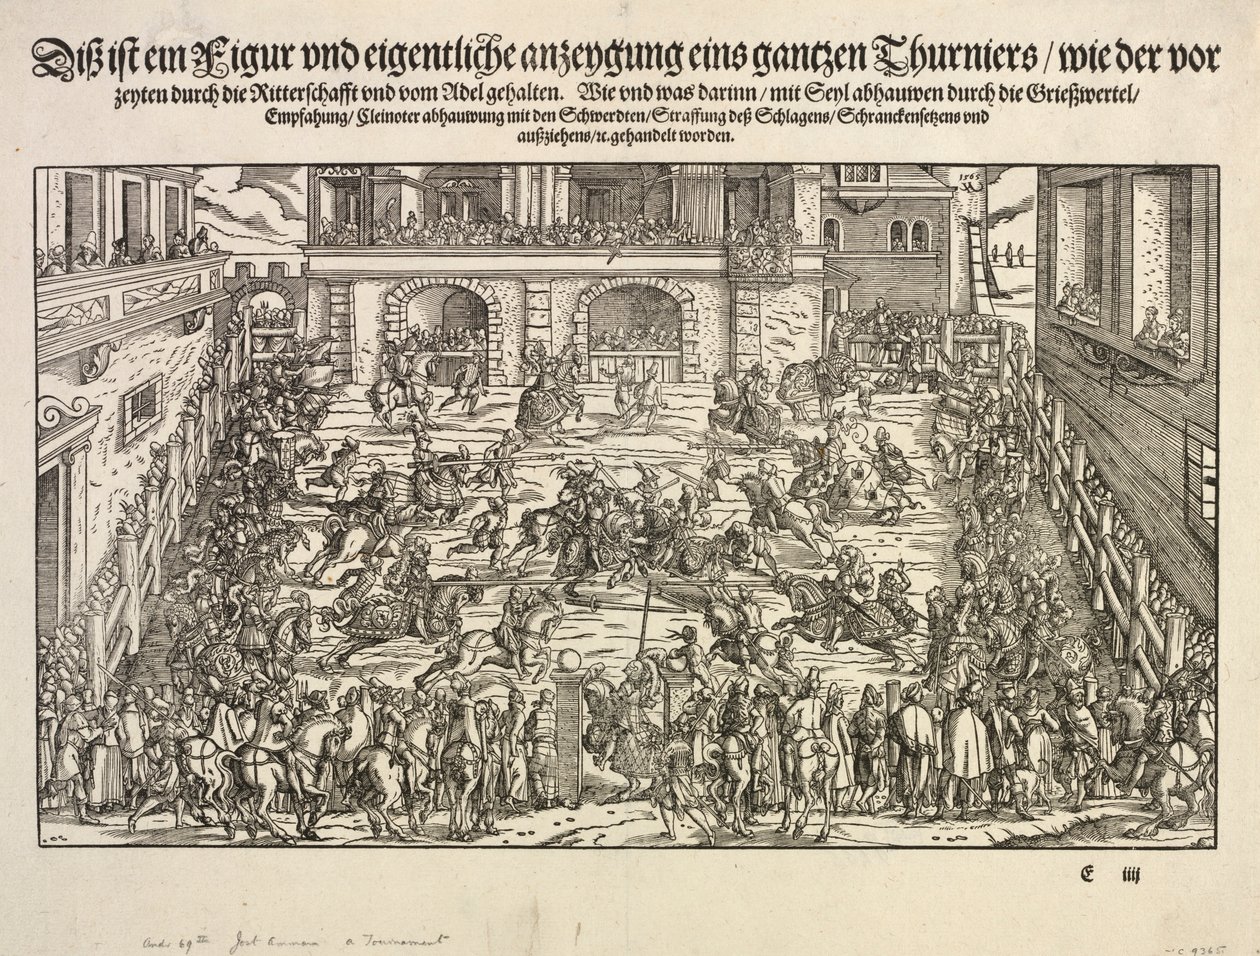 Diß ist ein Figur vnd eigentliche anzeygung eins gantzen Thurniers / wie der vor
zeyten durch die Ritterschafft vnd vom Adel gehalten. Wie vnd was darinn / mit Seyl abhauwen durch die Grießwertel /
Empfahung / Cleinoter abhauwung mit den Schwerdten / Straffung deß Schlagens / Schranckensetzens vnd
außziehens / ꝛc. gehandelt worden.
1565
E iiij
Andr 69 Jost Amman a Tournament
C. 9365.